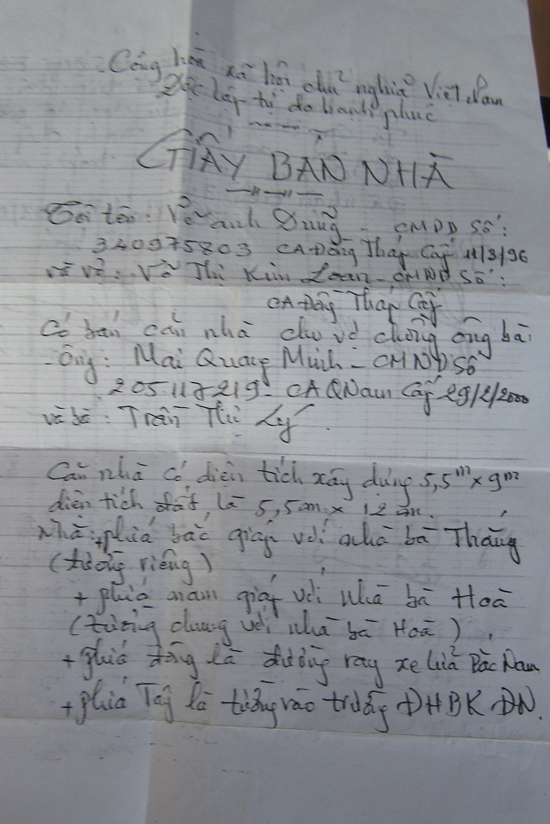 Cộng hoà xã hội chủ nghĩa Việt Nam
Độc lập tự do hạnh phúc
GIẤY BÁN NHÀ
Tôi tên: Võ anh Dũng - CMDD Số:
340975803 CA Đồng Tháp Cấp 11/3/96
và vợ: Võ Thị Kim Loan - CMDD Số:
CA Đồng Tháp Cấp
Có bán căn nhà cho vợ chồng ông bà:
- Ông: Mai Quang Minh - CMND Số
205117219 - CA QNam Cấp 29/2/2000
và bà: Trần Thị Lý.
Căn nhà có diện tích xây dựng 5,5m x 9m
diện tích đất là 5,5m x 12m.
Nhà: + phía bắc giáp với nhà bà Thắng
(tường riêng)
+ phía nam giáp với nhà bà Hoà
(tường chung với nhà bà Hoà)
+ phía đông là đường ray xe lửa Bắc Nam
+ phía Tây là tường rào trường ĐHBK ĐN.